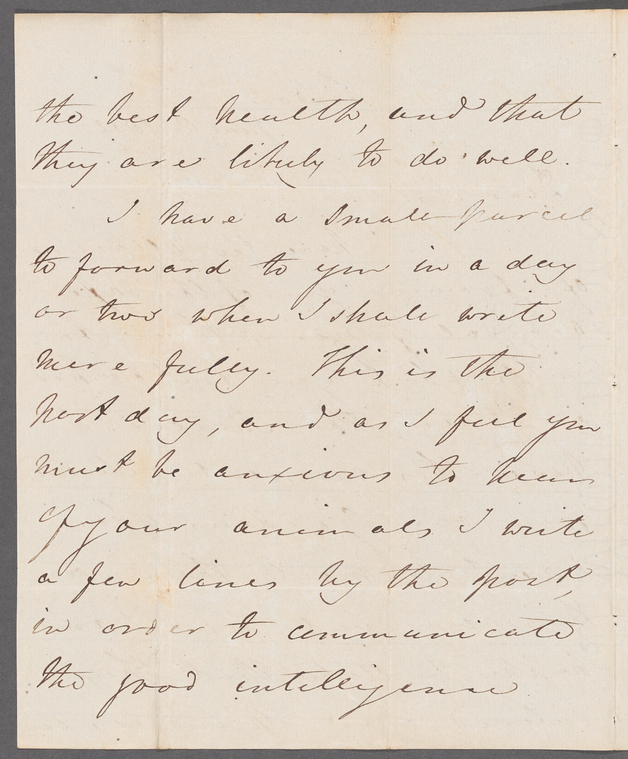 the best health, and that
they are likely to do well.
I have a small parcel
to forward to you in a day
or two when I shall write
more fully. This is the
post day, and as I feel you
must be anxious to hear
of your animals I write
a few lines by the post,
in order to communicate
the good intelligence